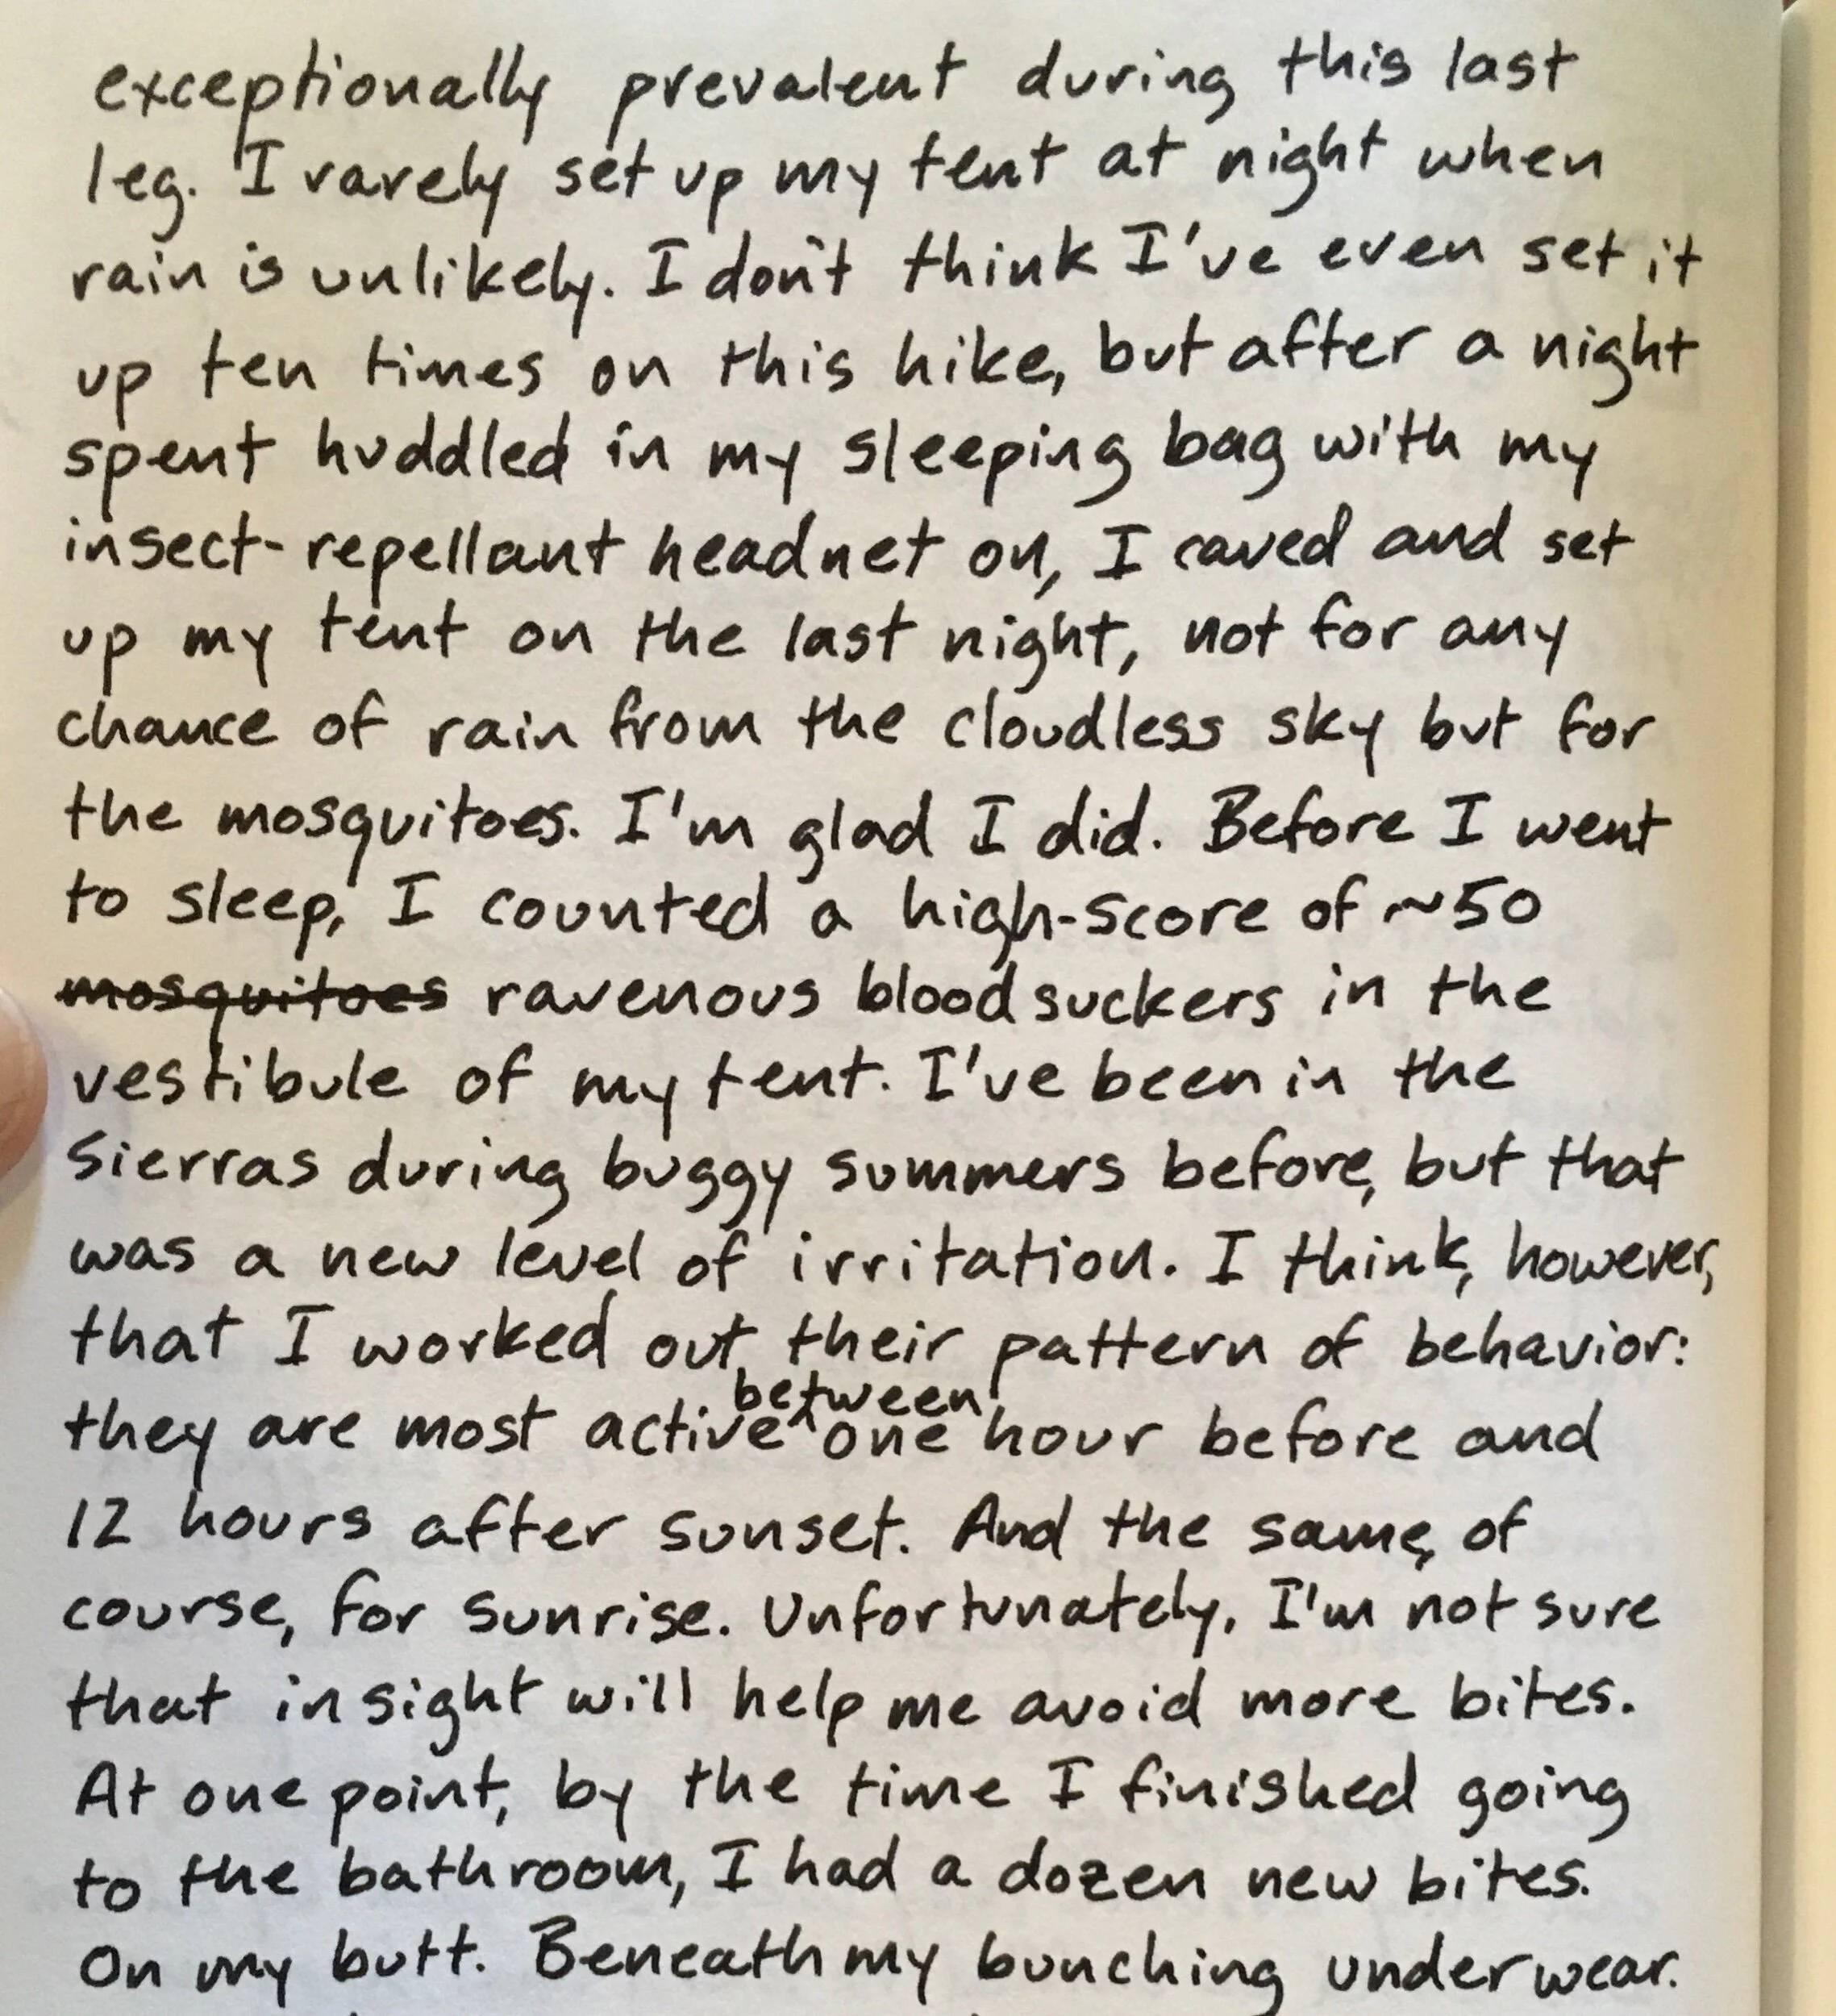 exceptionally prevalent during this last
leg. I rarely set up my tent at night when
rain is unlikely. I don't think I've even set it
up ten times on this hike, but after a night
spent huddled in my sleeping bag with my
insect-repellant headnet on, I caved and set
up my tent on the last night, not for any
chance of rain from the cloudless sky but for
the mosquitoes. I'm glad I did. Before I went
to sleep, I counted a high-score of ~50
mosquitoes ravenous bloodsuckers in the
vestibule of my tent. I've been in the
Sierras during buggy summers before, but that
was a new level of irritation. I think, however,
that I worked out their pattern of behavior:
between
they are most active ^ one hour before and
12 hours after sunset. And the same, of
course, for sunrise. Unfortunately, I'm not sure
that insight will help me avoid more bites.
At one point, by the time I finished going
to the bathroom, I had a dozen new bites.
On my butt. Beneath my bunching underwear.